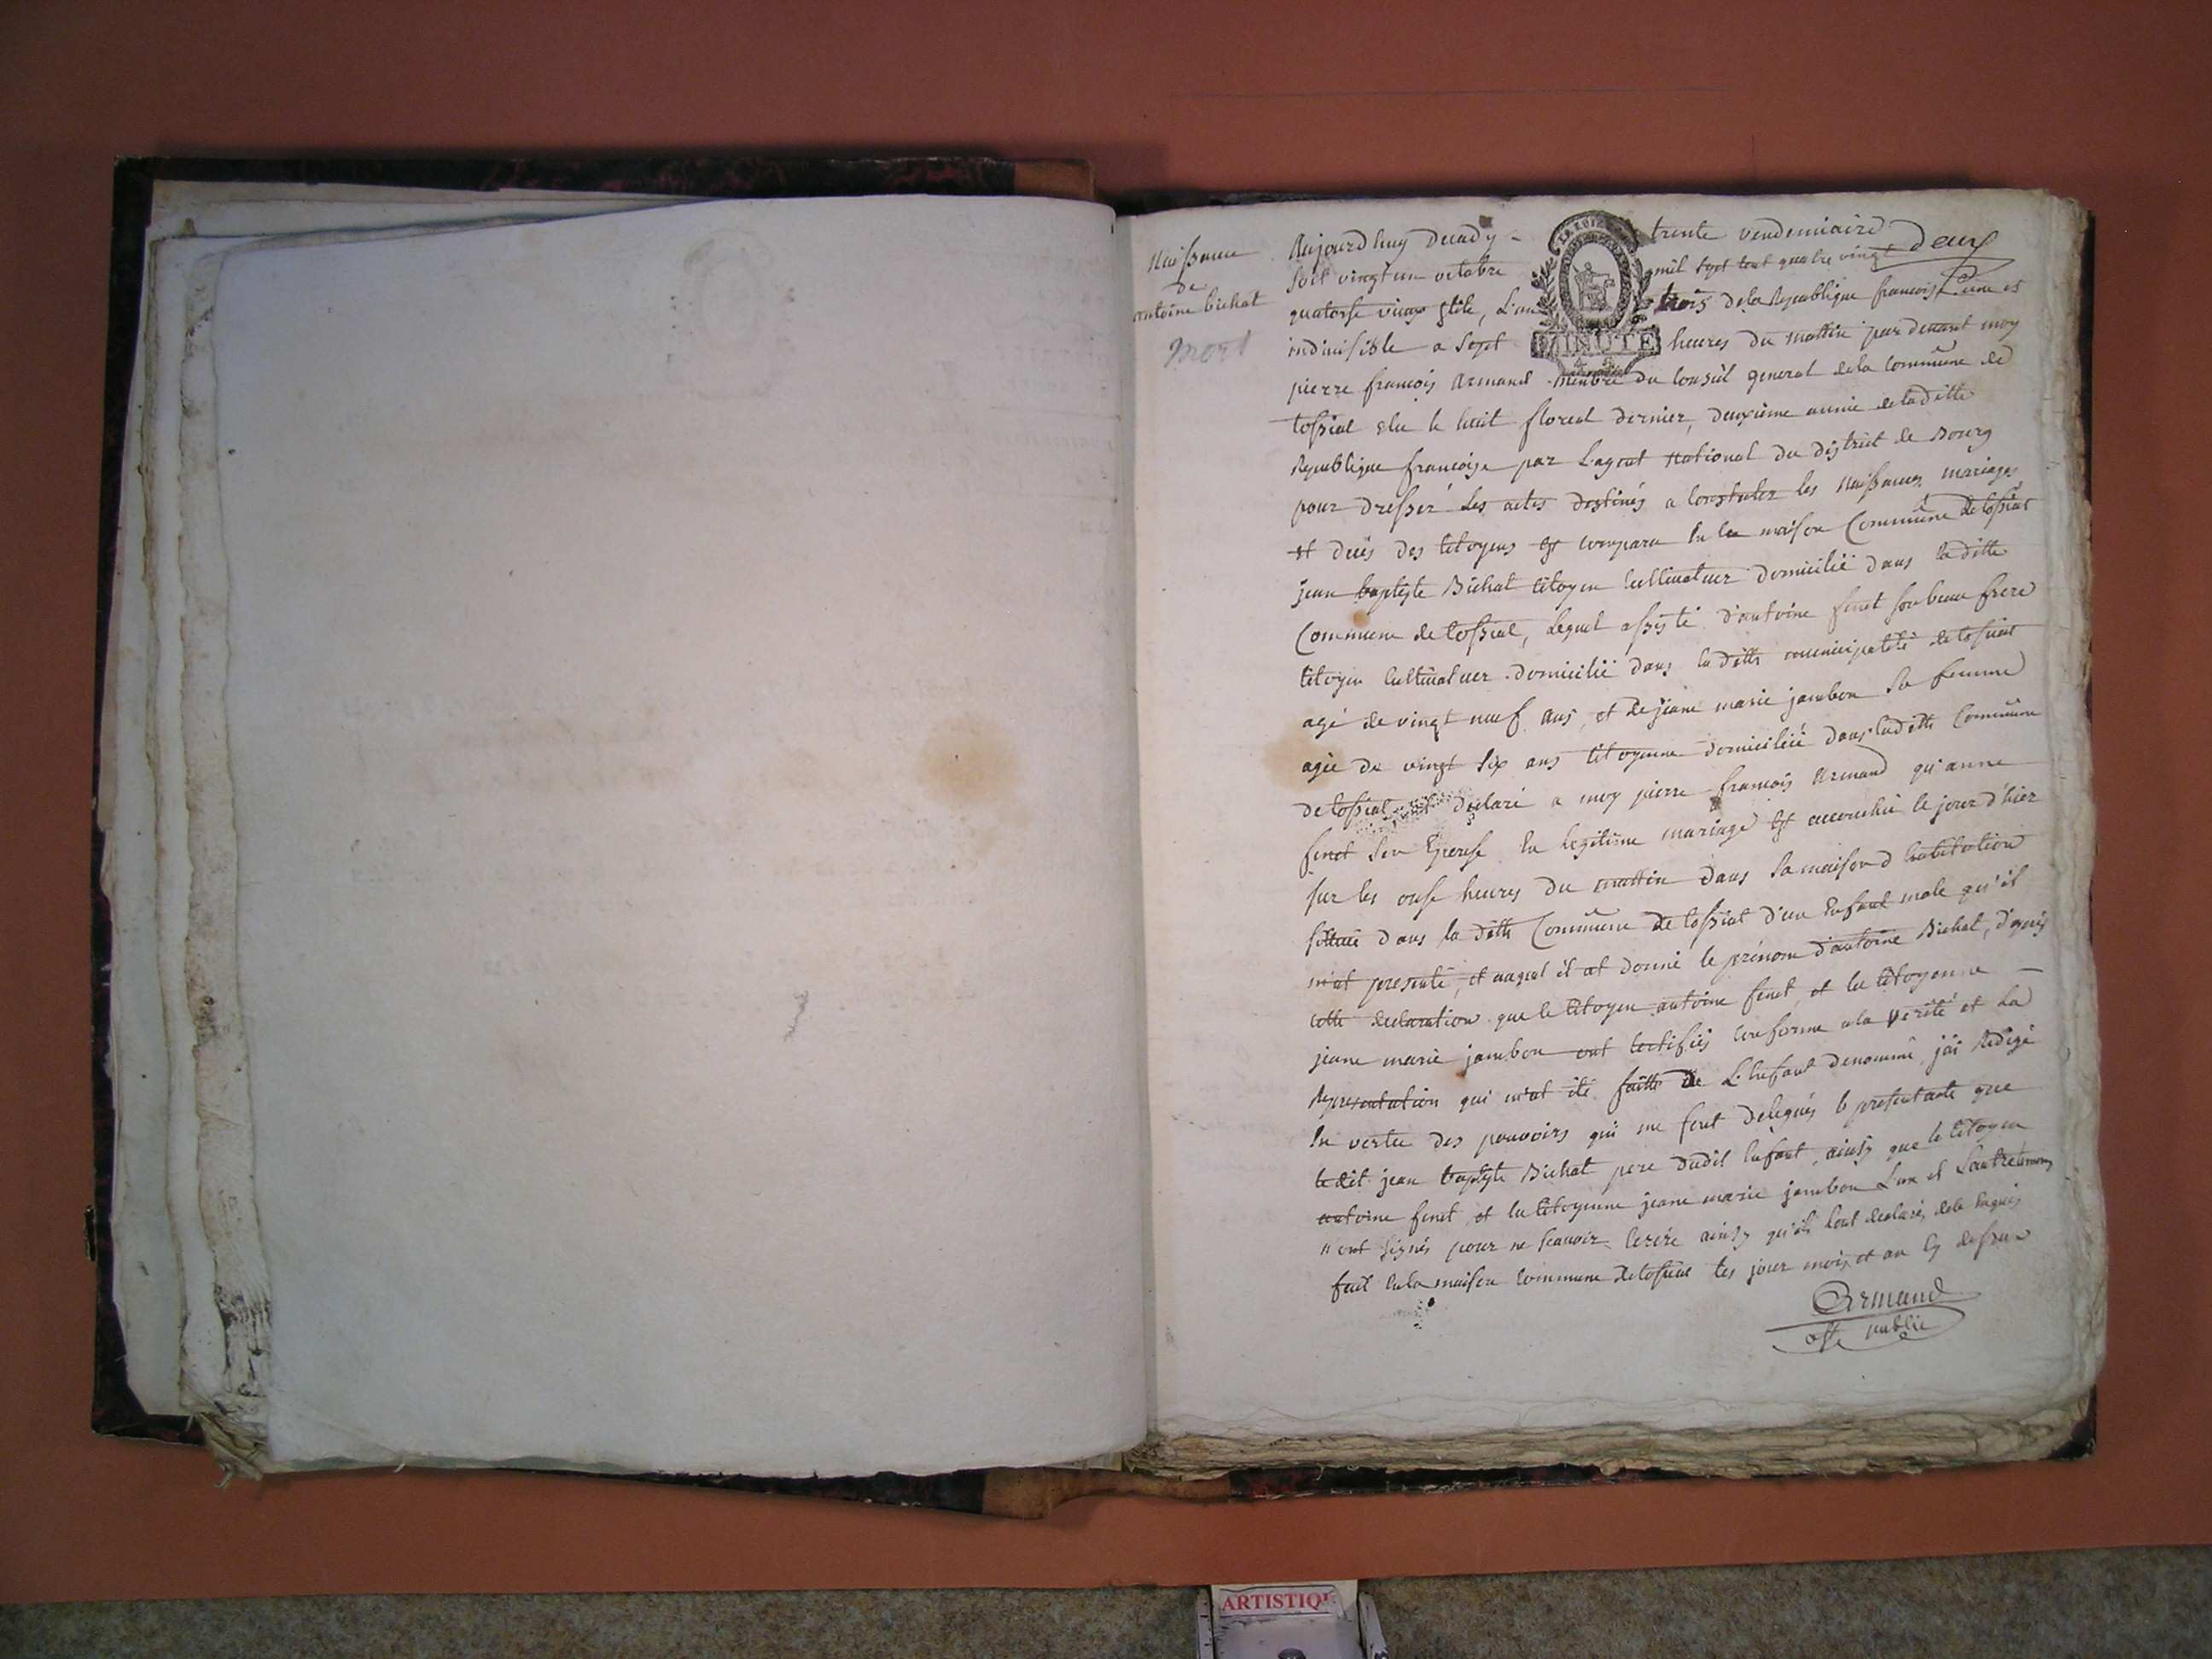 Naissance
de
antoine bichat
mort
deux
LA LOI
MINUTE
Aujourd huy Decady - trente vendemiaire
soit vingt un octobre mil sept cent quatre vingt
quatorse vieux stile, L'an trois de la Republique francoise une et
indivisible a sept heures du mattin par devant moy
pierre francois Armand membre du Conseil general de la Commune de
tossiat elu le huit floreal dernier, deuxieme année de la ditte
Republique francoise par L'agent National du district de Bourg
pour dresser les actes destinés a Constater les Naissances mariages
et decés des Citoyens est comparu En la maison Commune de tossiat
jean baptiste Bichat Citoyen Cultivateur domicilié dans la ditte
Commune de tossiat, lequel assisté d'antoine finet son beau frere
Citoyen Cultivateur domicilié dans la ditte municipalité de tossiat
agé de vingt neuf ans, et de jeane marie jambon sa femme
agée de vingt six ans Citoyenne domiciliée dans la ditte Commune
de tossiat, at declaré a moy pierre francois Armand qu'anne
finet son Epouse En legitime mariage est accouchée le jour d'hier
sur les onse heures du mattin dans sa maison d habitation
sittuée dans la ditte Commune de tossiat d'un Enfant male qu'il
m'at presenté, et auquel il at donné le prénom d'antoine Bichat, d'aprés
cette declaration que le Citoyen antoine finet, et la Citoyenne -
jeane marie jambon ont Certifiés Conforme a la verité et La
Representation qui m'at été faitte de L'Enfant denommé, j'ai Redigé
En vertu des pouvoirs qui me sont delegués le present acte que
le dit jean baptiste Bichat pere dudit Enfant, ainsy que le Citoyen
antoine finet, et la Citoyenne jeane marie jambon L'un et L'autre temoins
n'ont signés pour ne scavoir Ecrire ainsy qu'ils l'ont declaré, de ce Enquis
fait En la maison Commune de tossiat les jour mois et an Cy dessus
Armand
off. public
ARTISTIQ